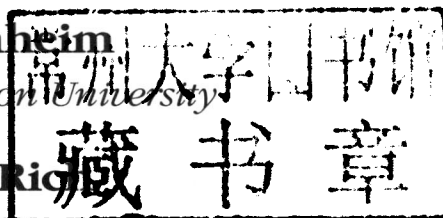 nheim
常州大学图书馆
on University
藏书章
Ric